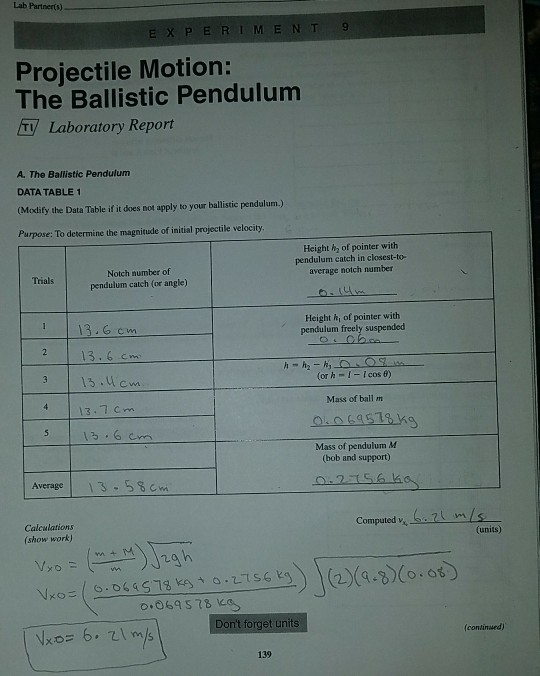 Lab Partner(s)
EXPERIMENT 9
Projectile Motion:
The Ballistic Pendulum
TI Laboratory Report
A. The Ballistic Pendulum
DATA TABLE 1
(Modify the Data Table if it does not apply to your ballistic pendulum.)
Purpose: To determine the magnitude of initial projectile velocity.
Trials
Notch number of
pendulum catch (or angle)
Height h₂ of pointer with
pendulum catch in closest-to-
average notch number
0.14m
1 13.6 cm
Height h₁ of pointer with
pendulum freely suspended
0.06m
2 13.6 cm
h = h₂ − h₁ 0.08 m
(or h = l − l cos θ)
3 13.4 cm
4 13.7 cm
Mass of ball m
0.069578 kg
5 13.6 cm
Mass of pendulum M
(bob and support)
0.2756 kg
Average 13.58 cm
Computed vₓ 6.21 m/s
(units)
Calculations
(show work)
Vxo = (m + M / m) √2gh
Vxo = (0.069578 kg + 0.2756 kg / 0.069578 kg) √(2)(9.8)(0.08)
Vxo = 6.21 m/s
Don't forget units
(continued)
139